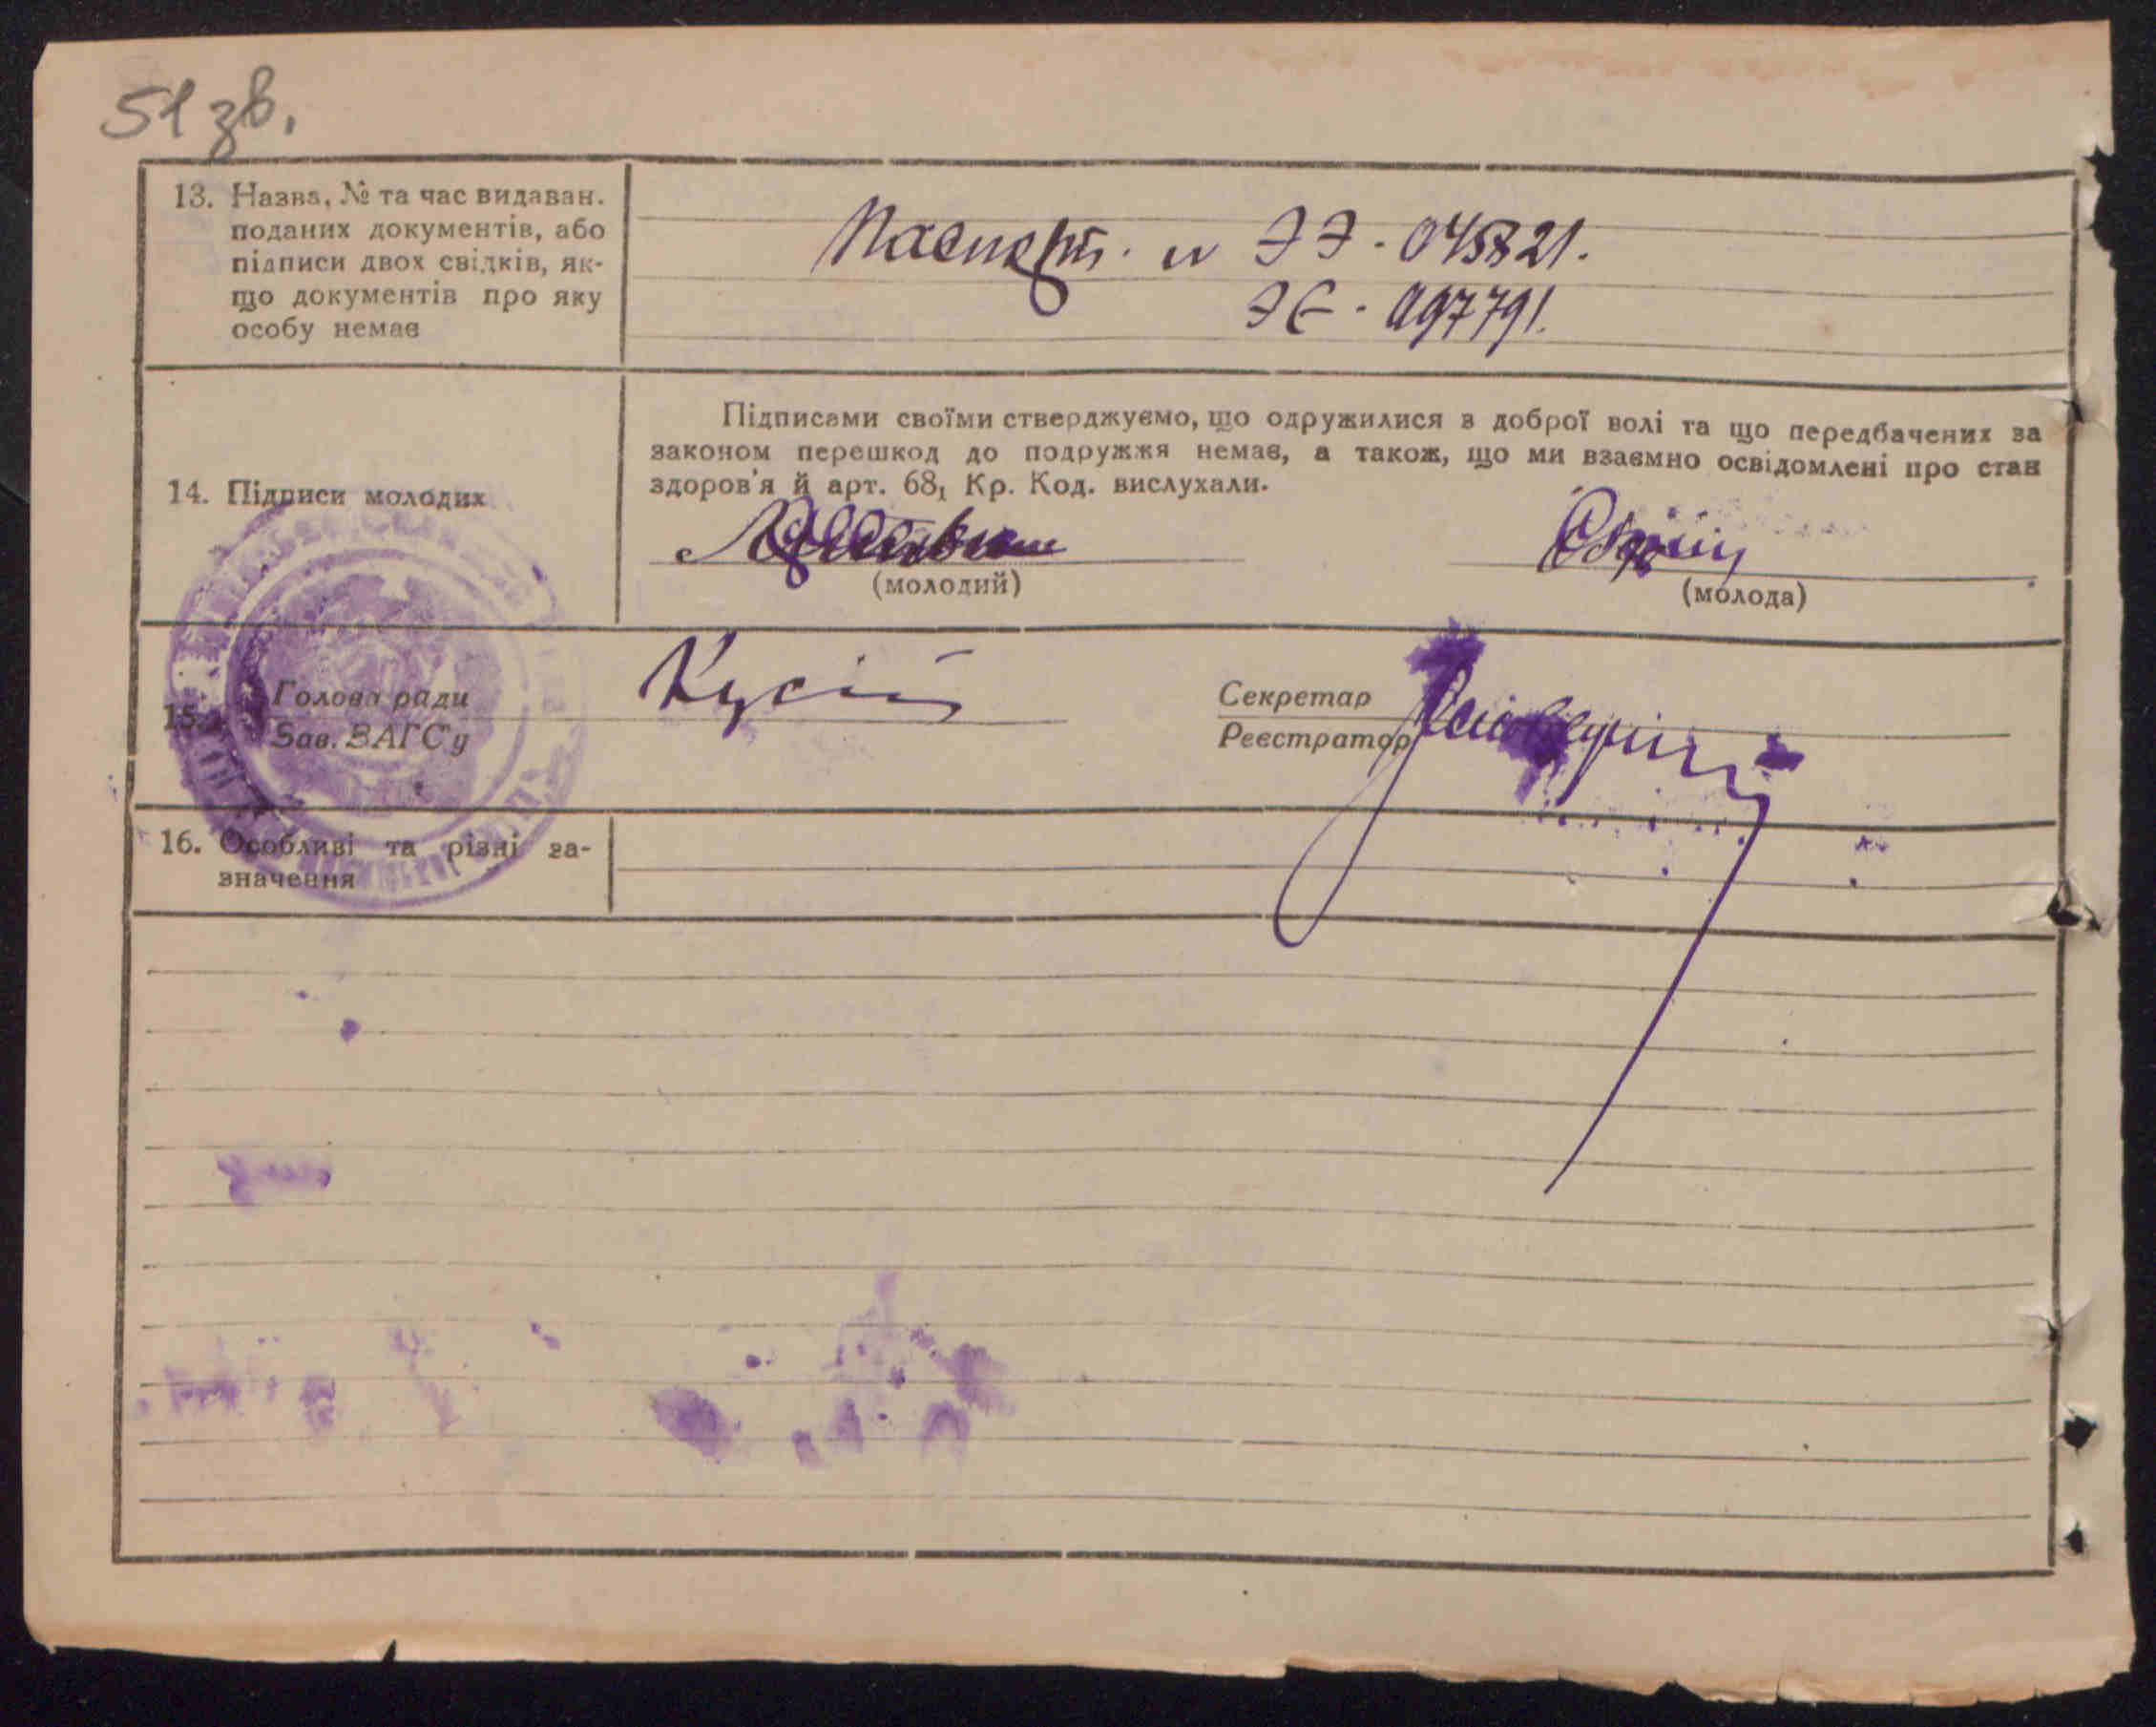 51 зв.
13. Назва, № та час видаван.
поданих документів, або
підписи двох свідків, як-
що документів про яку
особу немає
Паспорт. № ЭЭ - 045821.
ЭЄ - 097791.
Підписами своїми стверджуємо, що одружилися з доброї волі та що передбачених за
законом перешкод до подружжя немає, а також, що ми взаємно освідомлені про стан
здоров'я й арт. 68, Кр. Код. вислухали.
14. Підписи молодих
(молодий)
(молода)
15. Голова ради
Зав. ЗАГС'у
Секретар
Реєстратор
16. Особливі та різні за-
значення